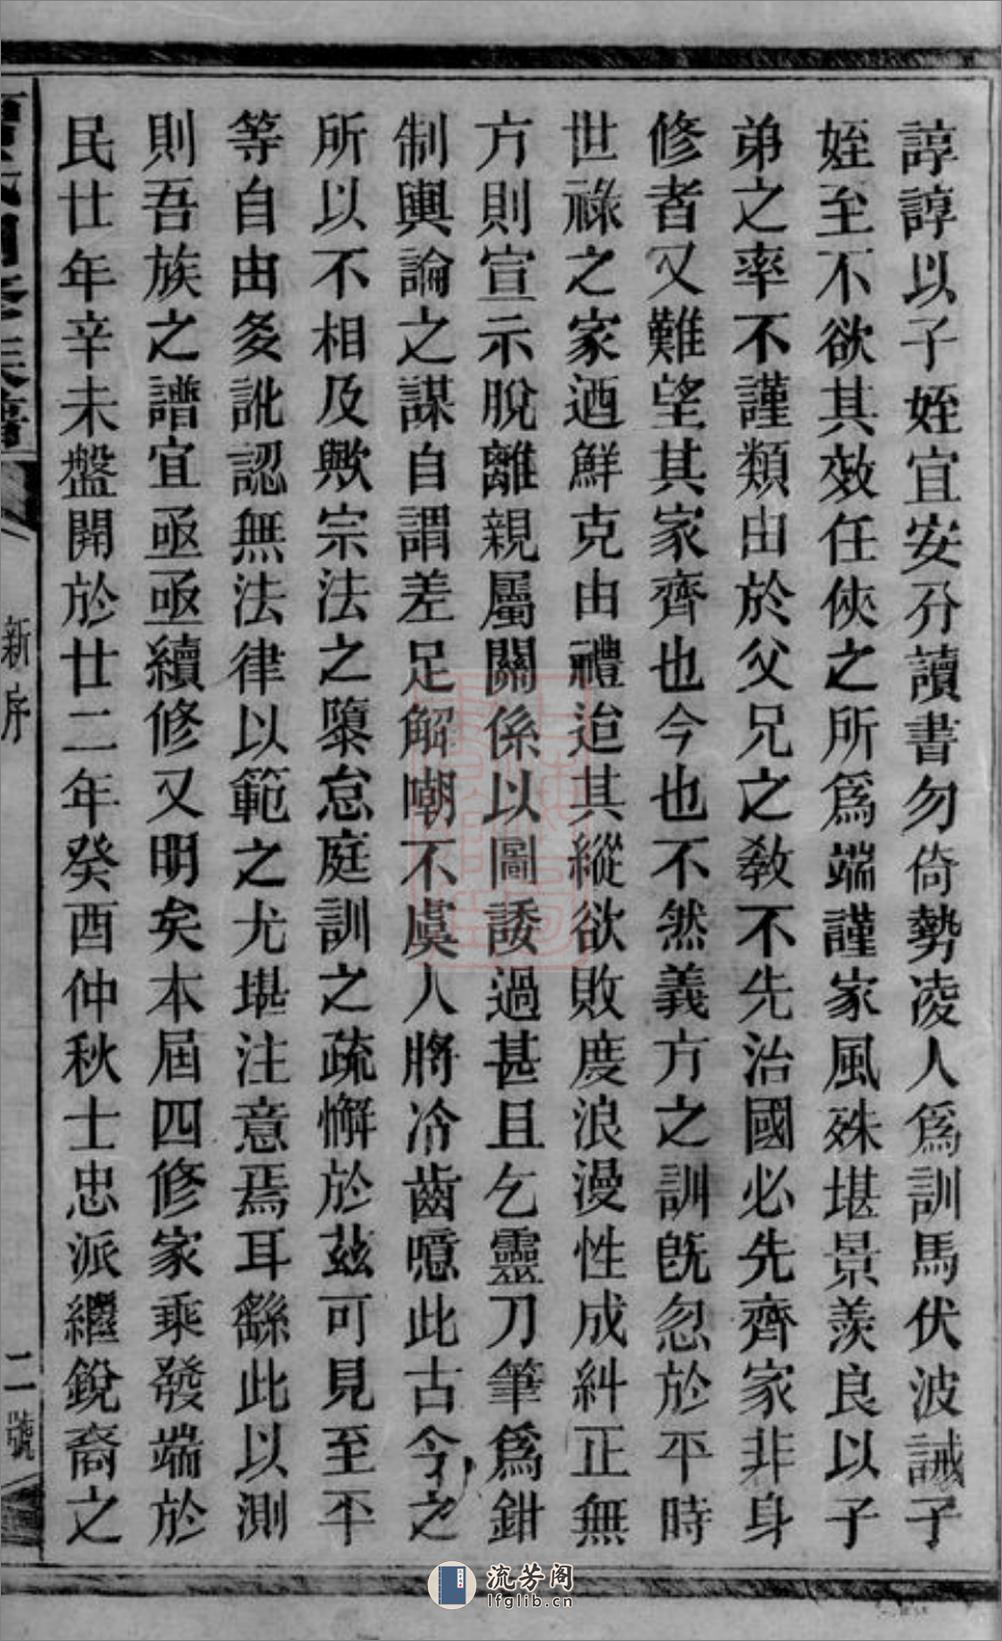 諄諄以子姪宜安分讀書勿倚勢凌人爲訓馬伏波誡子
姪至不欲其效任俠之所爲端謹家風殊堪景羨良以子
弟之率不謹類由於父兄之教不先治國必先齊家非身
修者又難望其家齊也今也不然義方之訓旣忽於平時
世祿之家迺鮮克由禮迨其縱欲敗度浪漫性成糾正無
方則宣示脫離親屬關係以圖諉過甚且乞靈刀筆爲鉗
制輿論之謀自謂差足解嘲不虞人將冷齒噫此古今之
所以不相及歟宗法之隳怠庭訓之疏懈於茲可見至平
等自由多訛認無法律以範之尤堪注意焉耳繇此以測
則吾族之譜宜亟亟續修又明矣本屆四修家乘發端於
民廿年辛未盤開於廿二年癸酉仲秋士忠派繼銳裔之
新序
二號
流芳阁
lfglib.cn